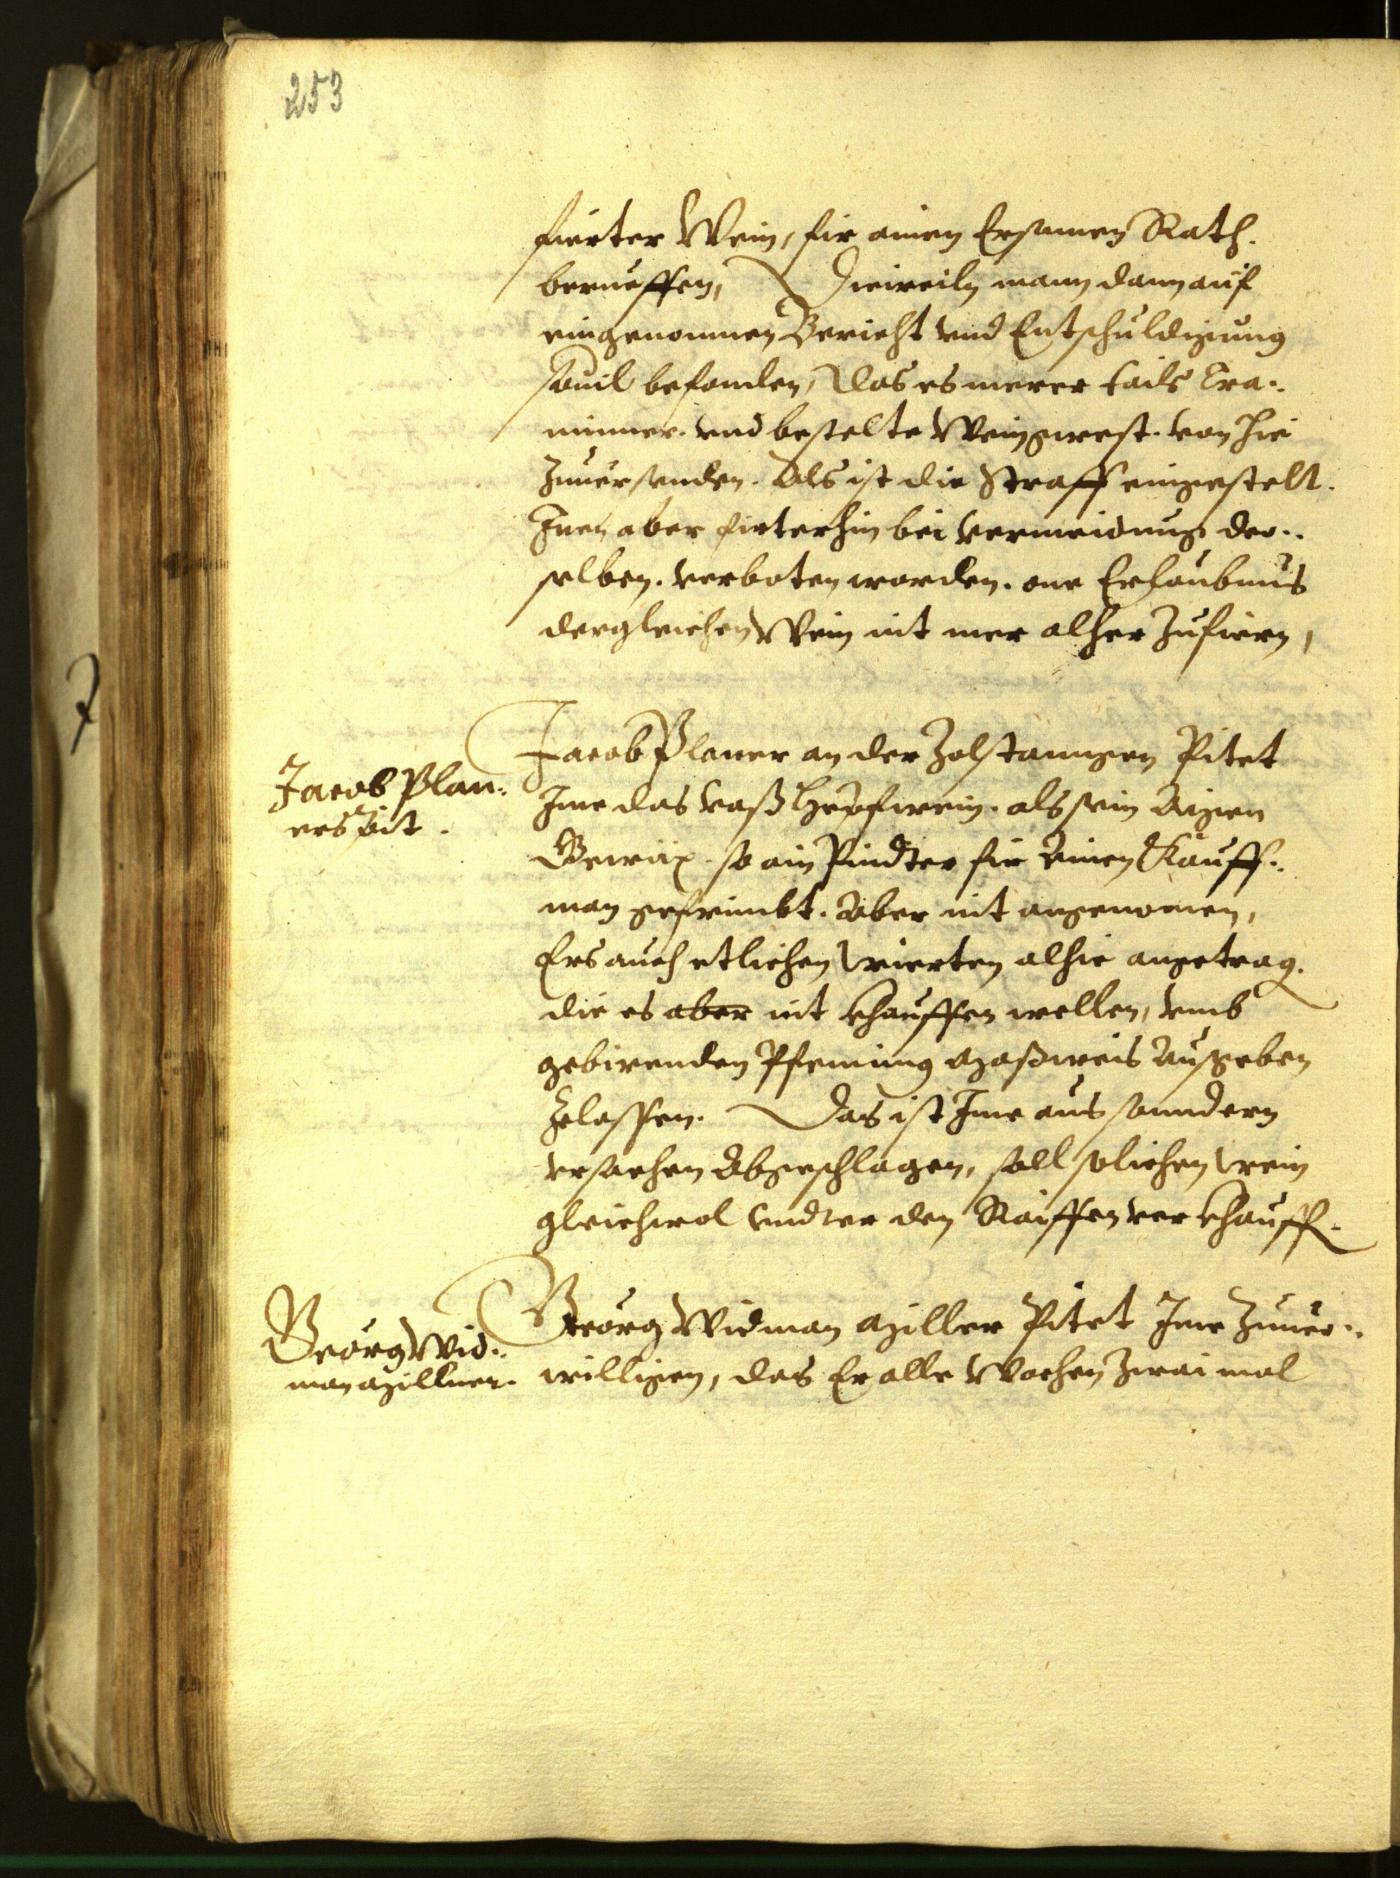 253
fierter Wein, fir ainen Ersamen Rath.
berueffen, Dieweiln mann dann auf
eingenomnen Bericht vnd Entschuldigung
souil befonden, Das es merer tails Tra-
minner. vnd bestelte Wein gwest. von hie
Zuuersenden. Als ist die Straff eingestelt.
Inen aber firterhin bei vermeidung der-
selben. verboten worden. one Erlaubnus
dergleichen Wein nit mer alher Zufiern,
Jacob Plan-
ers pit.
Jacob Planer an der Zolstanngen Pitet
Ime das vaß Hepfwein. als sein Aigen
Gewäx. so ain Pindter fir Ainen Kauff-
man gefrimbt. Aber nit angenomen,
Ers auch etlichen wierten alhie angetrag.
die es aber nit khauffen wellen, vmb
gebirenden Pfening Maßweis Ausgeben
Zelassen. Das ist Ime aus sonndern
vrsachen Abgeschlagen, soll solichen wein
gleichwol vndter den Raiffen verkhauff.
Georg Wid-
man Millner.
Georg Widman Miller Pitet Ime Zuuer-
willigen, das Er alle Wochen Zwai mal